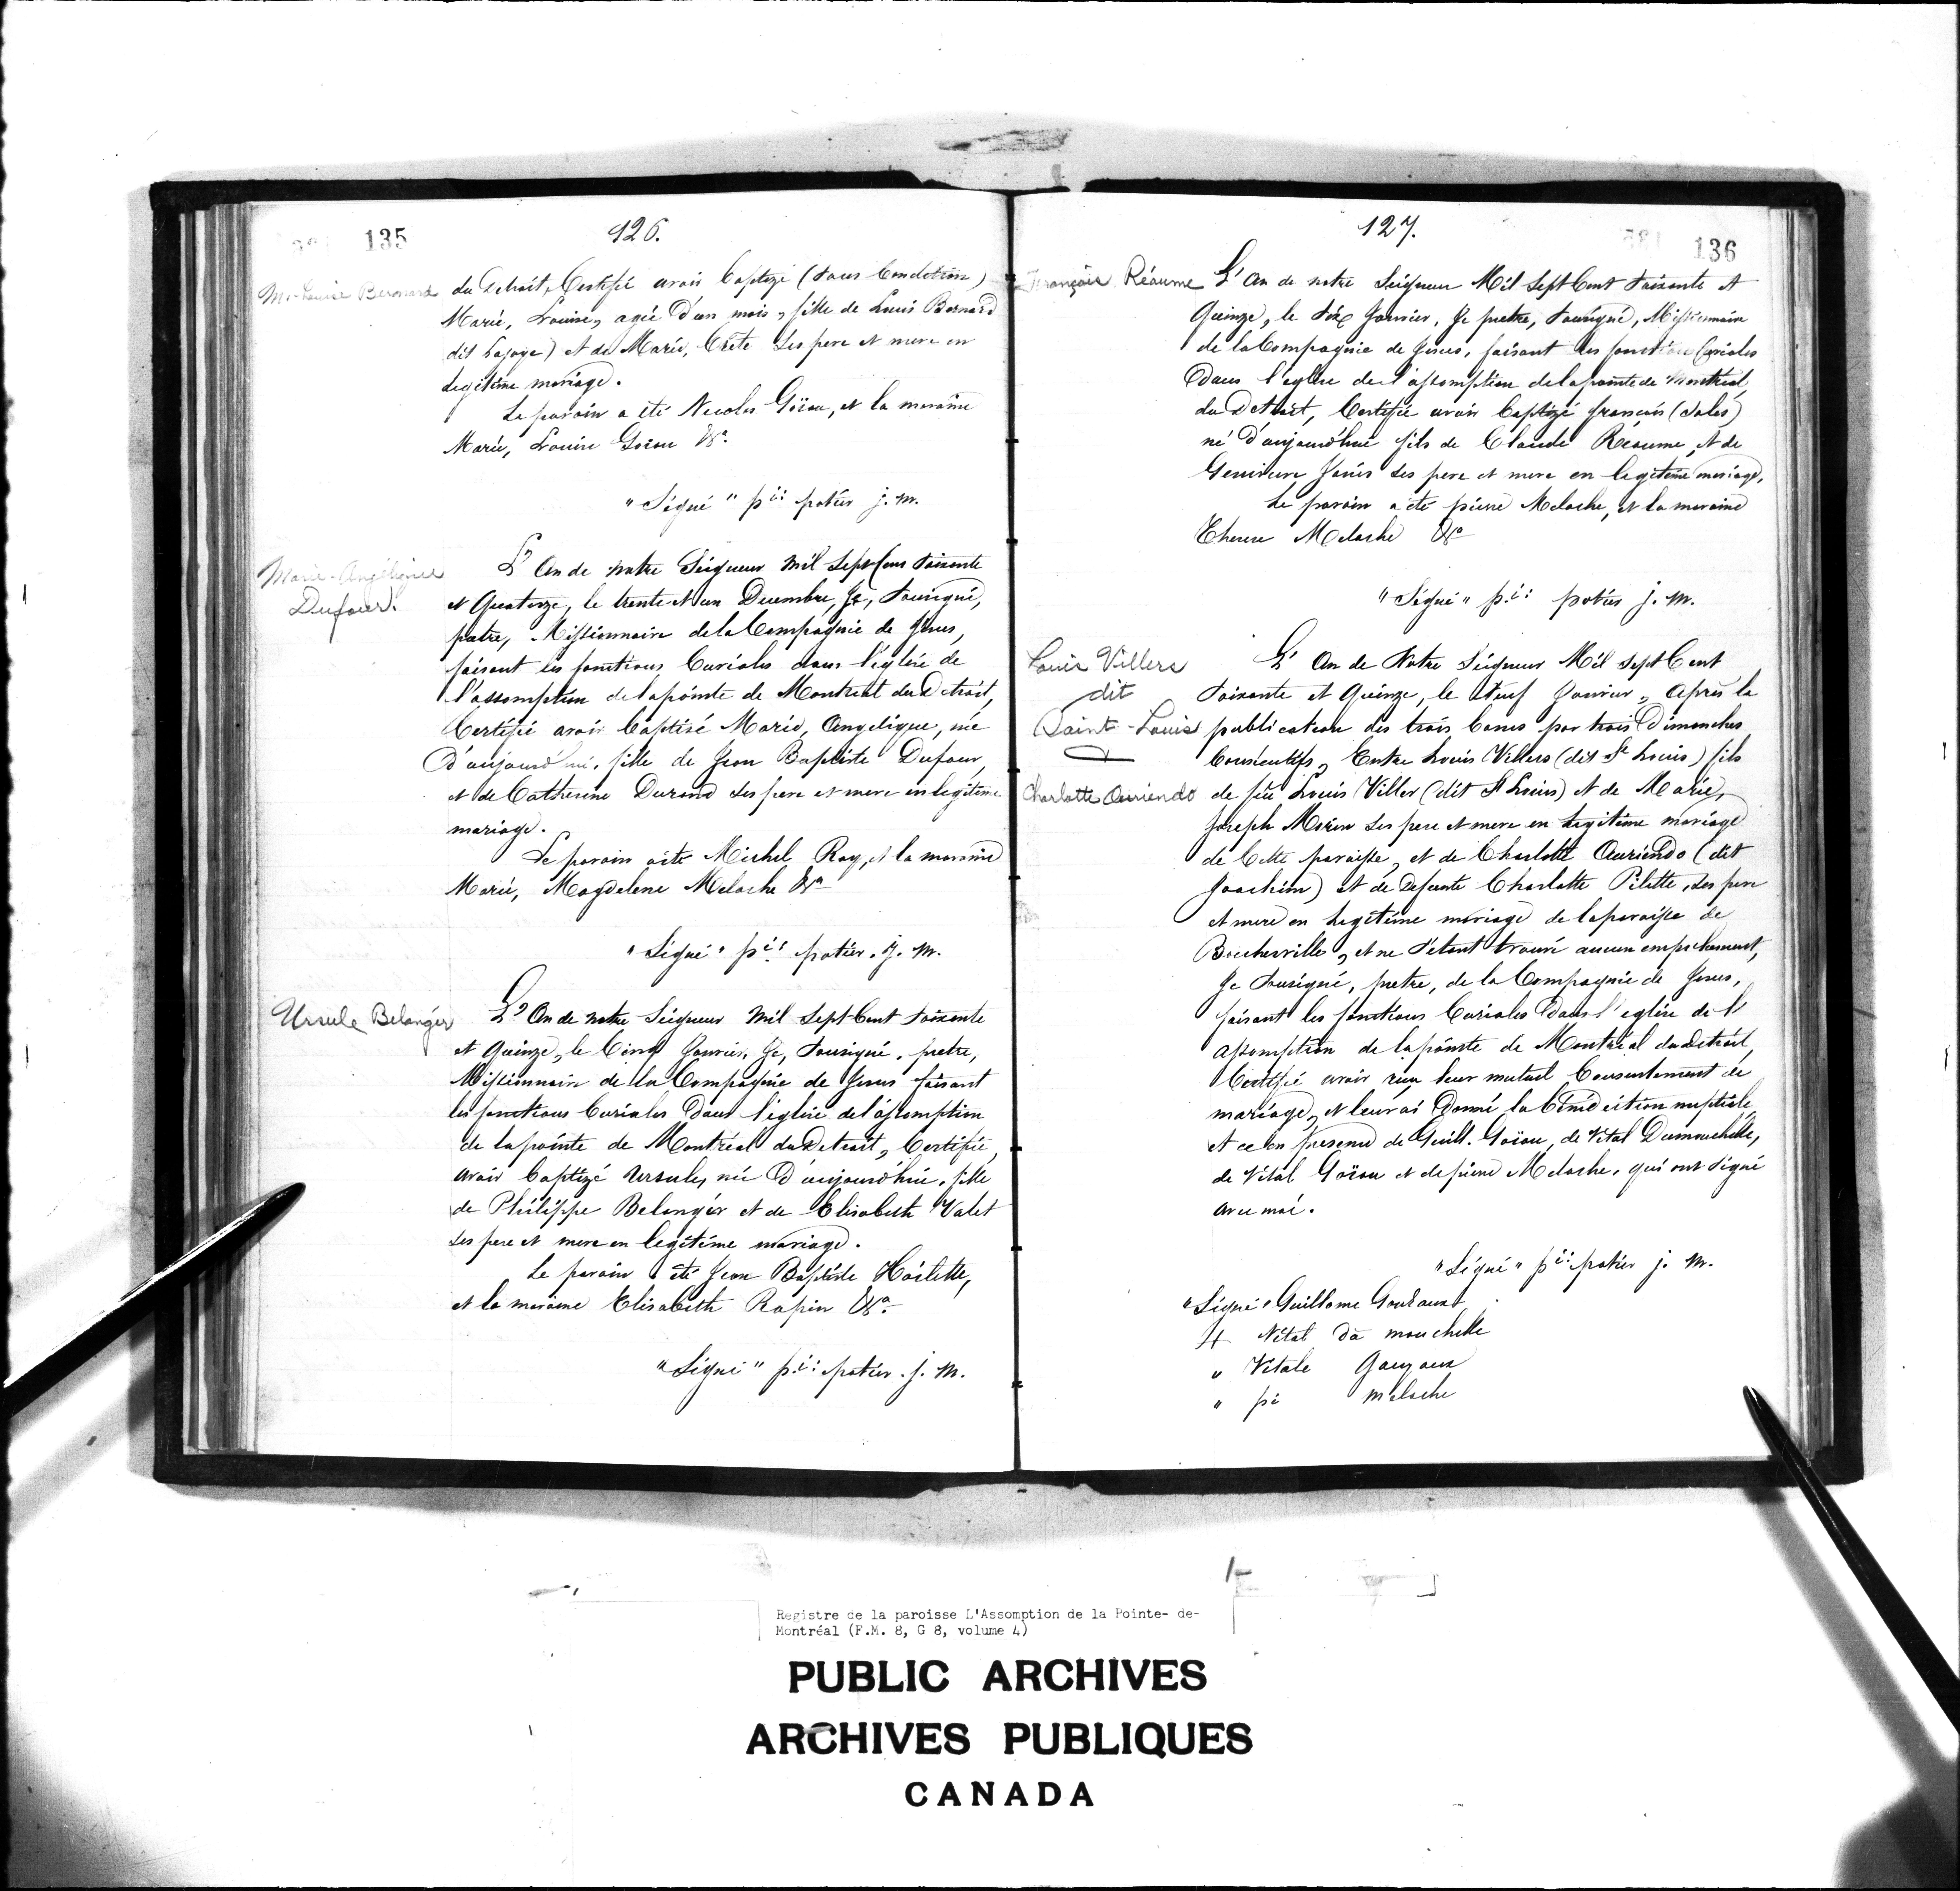 135
126.
Mie Louise Bernard
du Detroit, Certifie avoir baptizé (sous Condition)
Marie, Louise, agée d'un mois, fille de Louis Bernard
dit Lajoye) et de Marie, Crête ses pere et mere en
legitime mariage.
Le parain a été Nicolas Goïau, et la maraine
Marie, Louise Goïau &a.
"Signé" pre: potier j. m.
Marie-Angélique
Dufour.
L'An de notre Seigneur mil Sept Cent soixante
et Quatorze, le trente et un Decembre, Je, soussigné,
pretre, Missionnaire de la Compagnie de Jesus,
faisant les fonctions Curiales dans l'église de
l'assomption de la pointe de Montréal du Detroit,
Certifié avoir baptisé Marie, Angelique, née
D'aujourd'hui, fille de Jean Baptiste Dufour,
et de Catherine Durand ses pere et mere en legitime
mariage.
Le parain a été Michel Roy, et la maraine
Marie, Magdelene Meloche &a
"Signé" pre: potier. j. m.
Ursule Belanger
L'An de notre Seigneur mil Sept Cent soixante
et Quinze, le Cinq Janvier, Je, soussigné, pretre,
Missionnaire de la Compagnie de Jesus faisant
les fonctions Curiales Dans l'église de l'assomption
de la pointe de Montréal du Detroit, Certifié,
avoir baptizé Ursule, née D'aujourd'hui, fille
de Philippe Belanger et de Elisabeth Valet
ses pere et mere en legitime mariage.
Le parain a été Jean Baptiste
et la maraine Elisabeth Rapin &a.
"Signé" pre: potier. j. m.
127.
136
François Réaume
L'An de notre Seigneur Mil Sept Cent soixante et
Quinze, le six Janvier, Je pretre, soussigné, Missionnaire
de la Compagnie de Jesus, faisant les fonctions Curiales
Dans l'eglise de l'assomption de la pointe de Montréal
du Detroit, Certifié avoir baptizé françois (Sales)
né D'aujourd'hui fils de Claude Réaume, et de
Genevieve Janis ses pere et mere en legitime mariage,
Le parain a été pierre Meloche, et la maraine
Therese Meloche &a
"Signé" pre: potier j. m.
Louis Villers
dit
Saint-Louis
&
Charlotte Auriendo
L'An de Notre Seigneur Mil Sept Cent
soixante et Quinze, le Neuf Janvier, Après la
publication des trois bancs par trois Dimanches
Consécutifs, Entre Louis Villers (dit St Louis) fils
de feu Louis Viller (dit St Louis) et de Marie,
Joseph Morin ses pere et mere en legitime mariage
de Cette paroisse, et de Charlotte Auriendo (dit
Joachim) et de Defunte Charlotte Pilette, ses pere
et mere en legitime mariage de la paroisse de
Boucherville, et ne s'étant trouvé aucun empechement,
Je soussigné, pretre, de la Compagnie de Jesus,
faisant les fonctions Curiales Dans l'eglise de l'
assomption de la pointe de Montréal du Detroit,
Certifié avoir reçu leur mutuel Consentement de
mariage, et leur ai Donné la bénédiction nuptiale
et ce en presence de Guill. Goïau, de Vital Dumouchelle,
de Vital Goïau et de pierre Meloche, qui ont signé
avec moi.
"Signé" pre: potier j. m.
"Signé" Guillome
" Vital da mouchelle
" Vitale
" pi meloche
Registre de la paroisse L'Assomption de la Pointe- de-
Montréal (F.M. 8, G 8, volume 4)
PUBLIC ARCHIVES
ARCHIVES PUBLIQUES
CANADA